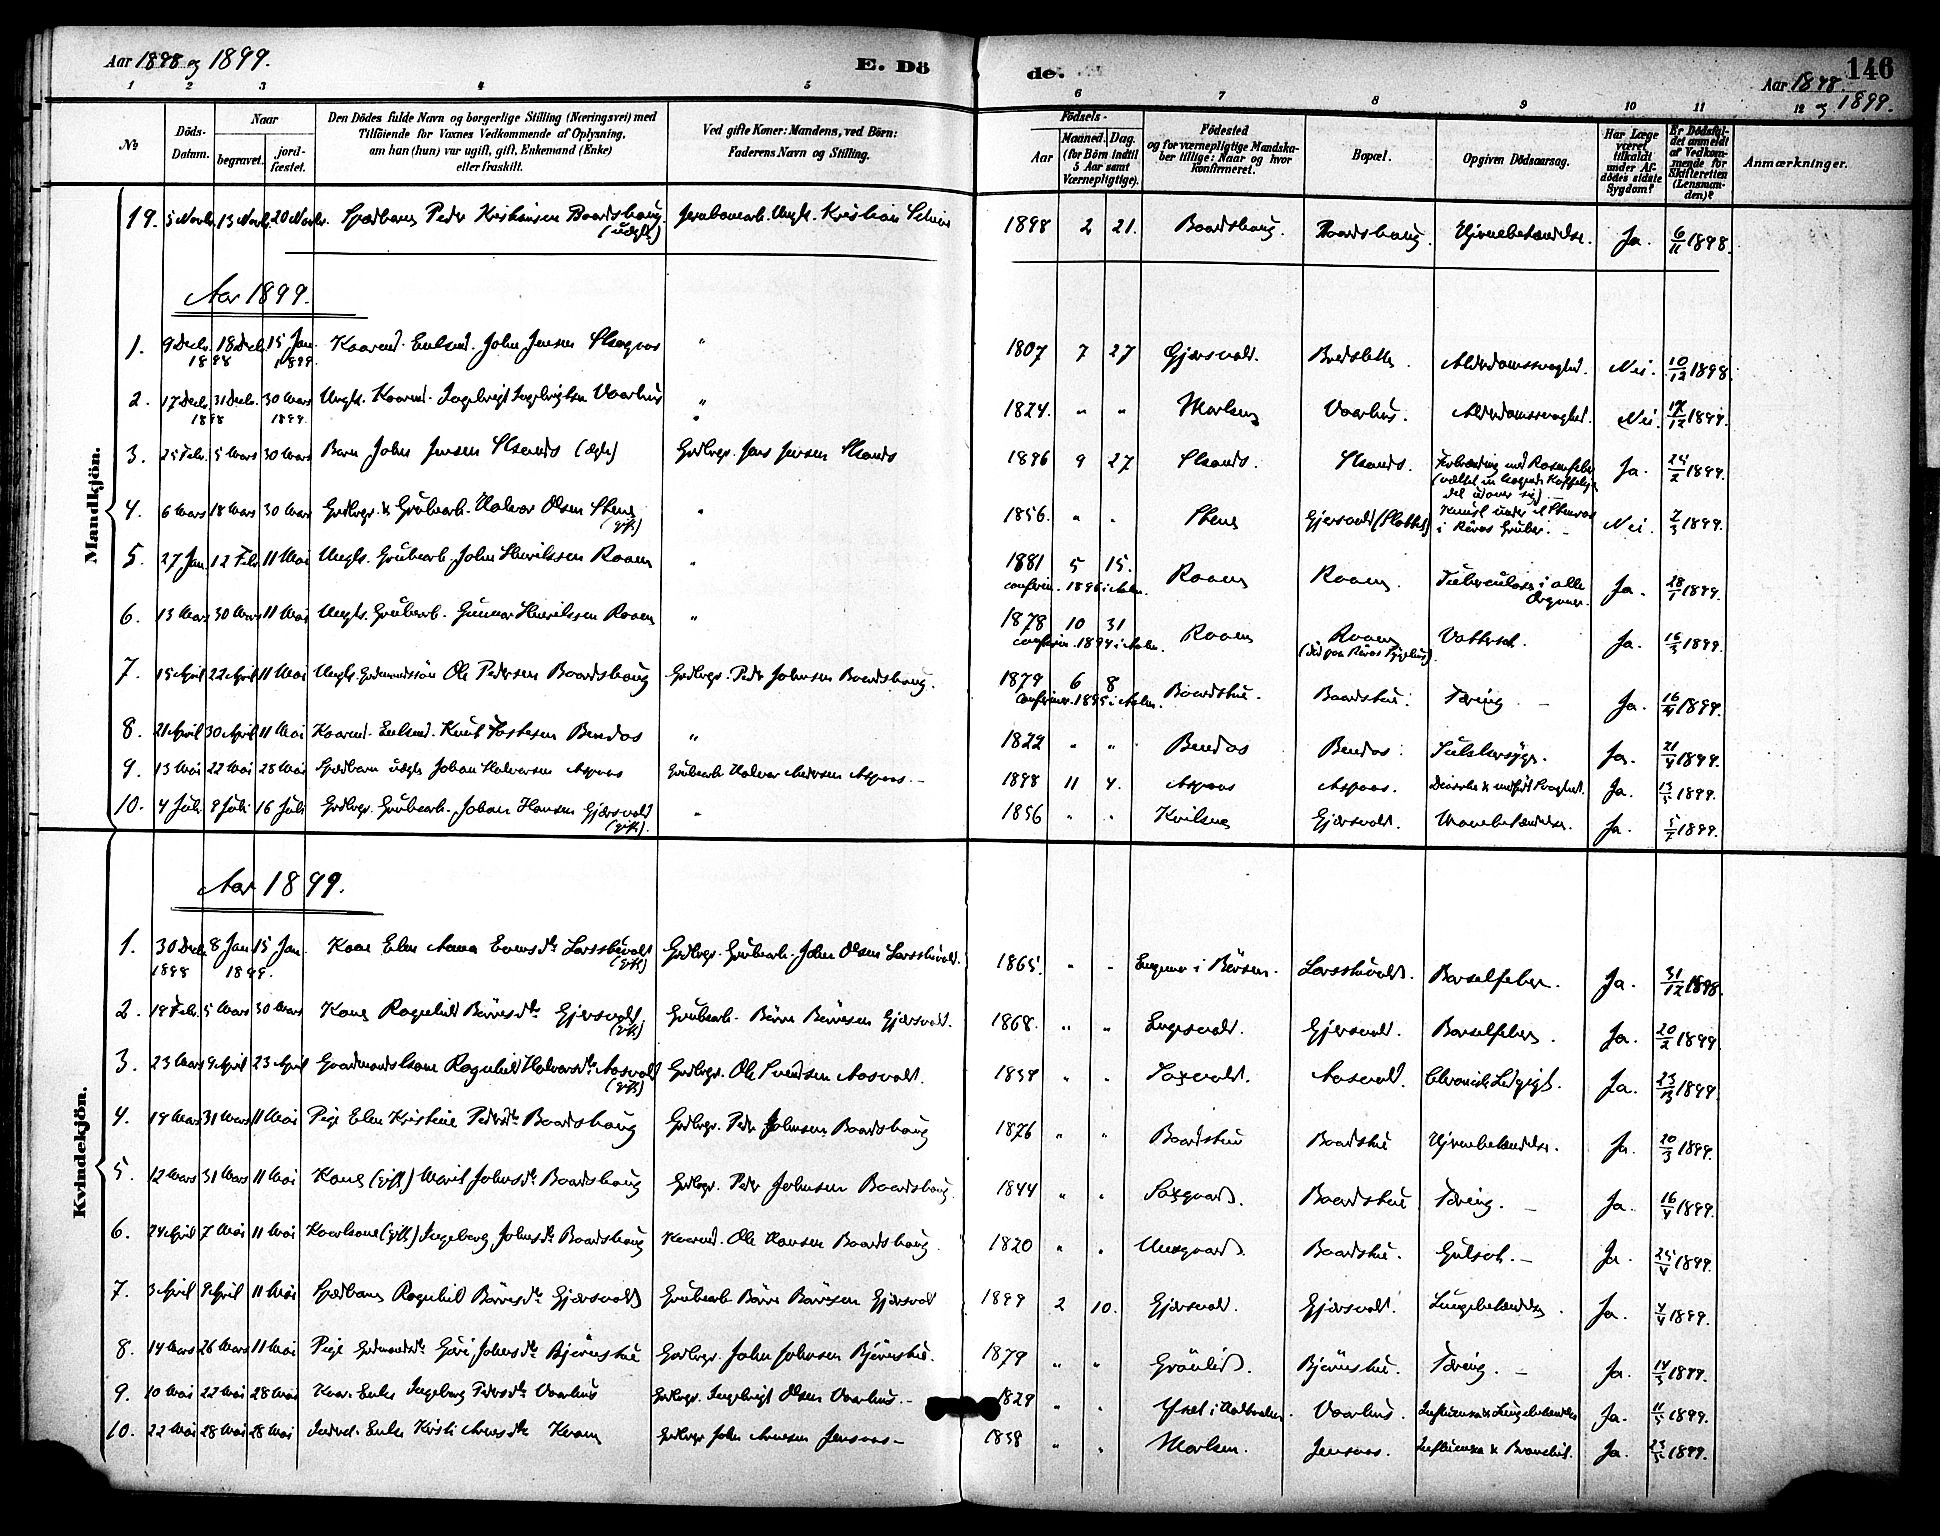 Aar 1898 og 1899.
E. Döde.
146
Aar 1898 og 1899.
1 2 3 4 5 6 7 8 9 10 11 12
№
Döds-Datum.
Naar
begravet.
jord-fæstet.
Den Dödes fulde Navn og borgerlige Stilling (Næringsvei) med
Tilföiende for Voxnes Vedkommende af Oplysning,
om han (hun) var ugift, gift, Enkemand (Enke)
eller fraskilt.
Ved gifte Koner: Mandens, ved Börn:
Faderens Navn og Stilling.
Födsels-
Aar
Maaned. Dag.
(for Börn indtil
5 Aar samt
Værnepligtige).
Födested
og for værnepligtige Mandska-
ber tillige: Naar og hvor
konfirmeret.
Bopæl.
Opgiven Dödsaarsag.
Har Læge
været
tilkaldt
under Af-
dödes sidste
Sygdom?
Er Dödsfal-
det anmeldt
af Vedkom-
mende for
Skifteretten
(Lensman-
den)?
Anmærkninger.
Mandkjön.
19. 13 Novbr. 20 Novbr. Spædbarn Peder Kristiansen Baardshaug (uægte) Jernbanearb. Ungk. Kristian 1898 2 21. Baardshaug. Baardshaug. Hjernebetændelse. Ja. 6/11 1898.
Aar 1899.
1. 9 Decbr. 1898 18 Decbr. 15 Jan. 1899. Kaarmd. Enkemd. John Jensen " 1807 7 27 Gjærsvold. Bredsletten. Alderdomssvaghed. Nei. 10/12 1898.
2. 17 Decbr. 1898 31 Decbr. 30 Mars 1899. Ungk. Kaarmd. Ingebrigt Ingebrigtsen Vaarhus " 1824. " " Morken Vaarhus. Alderdomssvaghed. Nei. 1899.
3. 25 Febr. 5 Mars 30 Mars Barn John Jensen (ægte) Grdbrgr. Jens Jensen 1896 9 27 Ja. 1899.
4. 6 Mars 18 Mars 30 Mars Grdbrgr. & Grubearb. Halvor Olsen Stene (gift) " 1856. " " Stene Gjersvold i Röros Gruber. Nei. 7/3 1899.
5. 27 Jan. 12 Febr. 11 Mai Ungk. Grubearb. John Henriksen Roaen " 1881 5 15. confirm. 1896 i Aalen. Roaen Roaen. Tuberculose i alle Organer. Ja. 28/1 1899.
6. 13 Mars 30 Mars 11 Mai Ungk. Grubearb. Gunnar Henriksen Roaen " 1878 10 31 confirm. 1894 i Aalen. Roaen Roaen (död paa Röros Sygehus). Vattersot. Ja. 16/3 1899.
7. 15 April 22 April 11 Mai Ungk. Grdmandssön Ole Pedersen Baardshaug Grdbrgr. Peder Johnsen Baardshaug. 1879 6 8 confirm. 1895 i Aalen. Baardshue. Baardshue. Tæring. Ja. 16/4 1899.
8. 21 April 30 April 11 Mai Kaarmd. Enkemd. Knut Tostensen Bendos " 1822 " " Bendos Bendos. Ja. 21/4 1899.
9. 13 Mai 22 Mai 28 Mai Spædbarn uægte Johan Halvorsen Aspaas Grubearb. Halvor Andersen Aspaas. 1898 11 4. Aspaas Aspaas. Ja. 13/5 1899.
10. 4 Juli 9 Juli 16 Juli Grdbrgr. Grubearb. Johan Hansen Gjærsvold (gift). " 1856 " " Kvilnes Gjærsvold. Mavebetændelse. Ja. 1899.
Kvindekjön.
Aar 1899.
1. 30 Decbr. 1898 8 Jan. 15 Jan. 1899. Kone Elen Anna Evensdtr. Larsskuvold (gift) Grdbrgr. Grubearb. John Olsen Larsskuvold. 1865. " " i Börsen. Larsskuvold. Barselfeber. Ja. 31/12 1898.
2. 18 Febr. 5 Mars 30 Mars Kone Ragnhild Börresdtr. Gjersvold (gift) Grubearb. Börre Börresen Gjærsvold. 1868. " " Engesvold. Gjersvold. Barselfeber. Ja. 20/2 1899.
3. 23 Mars 9 April 23 April Gaardmandskone Ragnhild Halvorsdtr. Aasvold (gift) Grdbrgr. Ole Svendsen Aasvold. " " Aasvold. Chronisk Ledgigt. Ja. 1899.
4. 19 Mars 31 Mars 11 Mai Pige Elen Kristine Pedersdtr. Baardshaug Grdbrgr. Peder Johnsen Baardshaug 1876 " " Baardshue Baardshue Hjernebetændelse. Ja. 20/3 1899.
5. 12 Mars 31 Mars 11 Mai Kone (gift) Marit Johnsdtr. Baardshaug Grdbrgr. Peder Johnsen Baardshaug 1844 " " Baardshue Tæring. Ja. 16/4 1899.
6. 24 April 7 Mai 11 Mai Kaarkone (gift) Ingeborg Johnsdtr. Baardshaug Kaarmd. Ole Hansen Baardshaug. 1820 " " Unsgaard. Baardshue. Gulsot. Ja. 25/4 1899.
7. 3 April 9 April 11 Mai Spædbarn Ragnhild Börresdtr. Gjærsvold Grubearb. Börre Börresen Gjærsvold 1899 2 10. Gjærsvold. Gjærsvold. Lungebetændelse. Ja. 4/4 1899.
8. 14 Mars 26 Mars 11 Mai Pige Grdmandsdtr. Guri Johnsdtr. Bjørnshue Grdbrgr. John Johnsen Bjørnshue. 1879 " " Grönlid. Bjørnshue. Tæring. Ja. 14/3 1899.
9. 10 Mai 22 Mai 28 Mai Kaar. Enke Ingeborg Pedersdtr. Vaarhus Grdbrgr. Ingebrigt Olsen Vaarhus. 1829 " " Vaarhus. Influenza & Lungebetændelse Ja. 11/5 1899.
10. 22 Mai 28 Mai 28 Mai Inderst. Enke Kirsti Arnesdtr. Grdbrgr. John Arnesen Jensaas. 1838 " " Morken. Jensaas. Influenza & Bronchit. Ja. 23/5 1899.